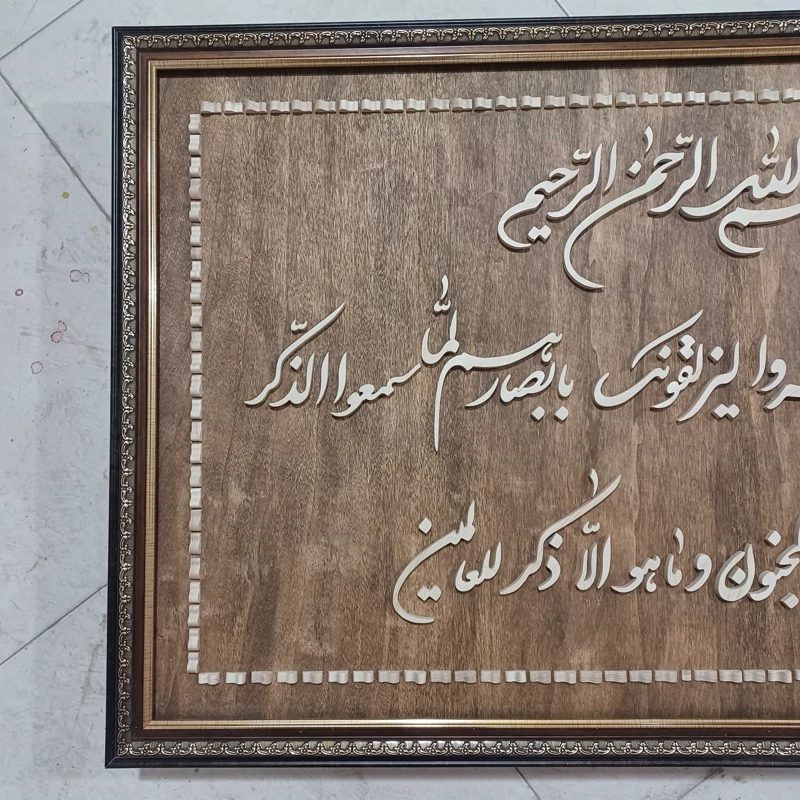 الله الرّحمٰن الرّحیم
لیزلقونک بابصارهم لمّا سمعوا الذّکر
و ما هو الّا ذکر للعالمین